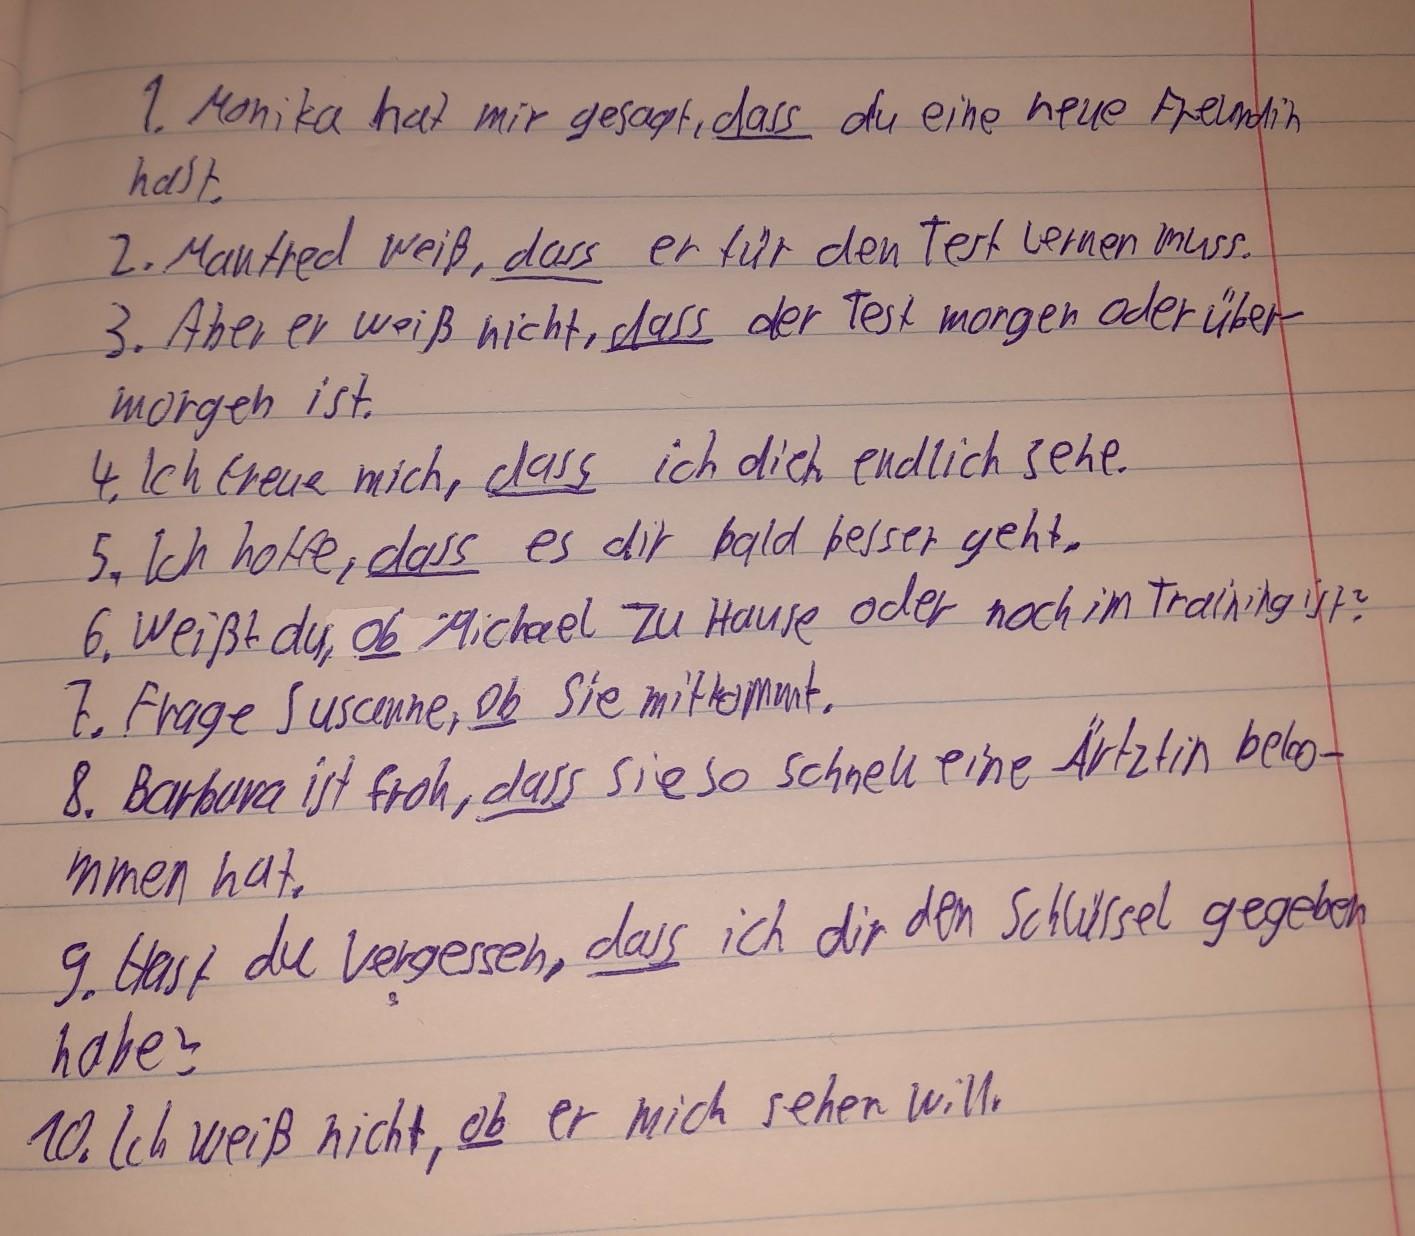 1. Monika hat mir gesagt, dass du eine neue Freundin
hast.
2. Manfred weiß, dass er für den Test lernen muss.
3. Aber er weiß nicht, dass der Test morgen oder über-
morgen ist.
4. Ich freue mich, dass ich dich endlich sehe.
5. Ich hoffe, dass es dir bald besser geht.
6. Weißt du, ob Michael zu Hause oder noch im Training ist?
7. Frage Susanne, ob Sie mitkommt.
8. Barbara ist froh, dass sie so schnell eine Ärtztin beko-
mmen hat.
9. Hast du vergessen, dass ich dir den Schlüssel gegeben
habe?
10. Ich weiß nicht, ob er mich sehen will.